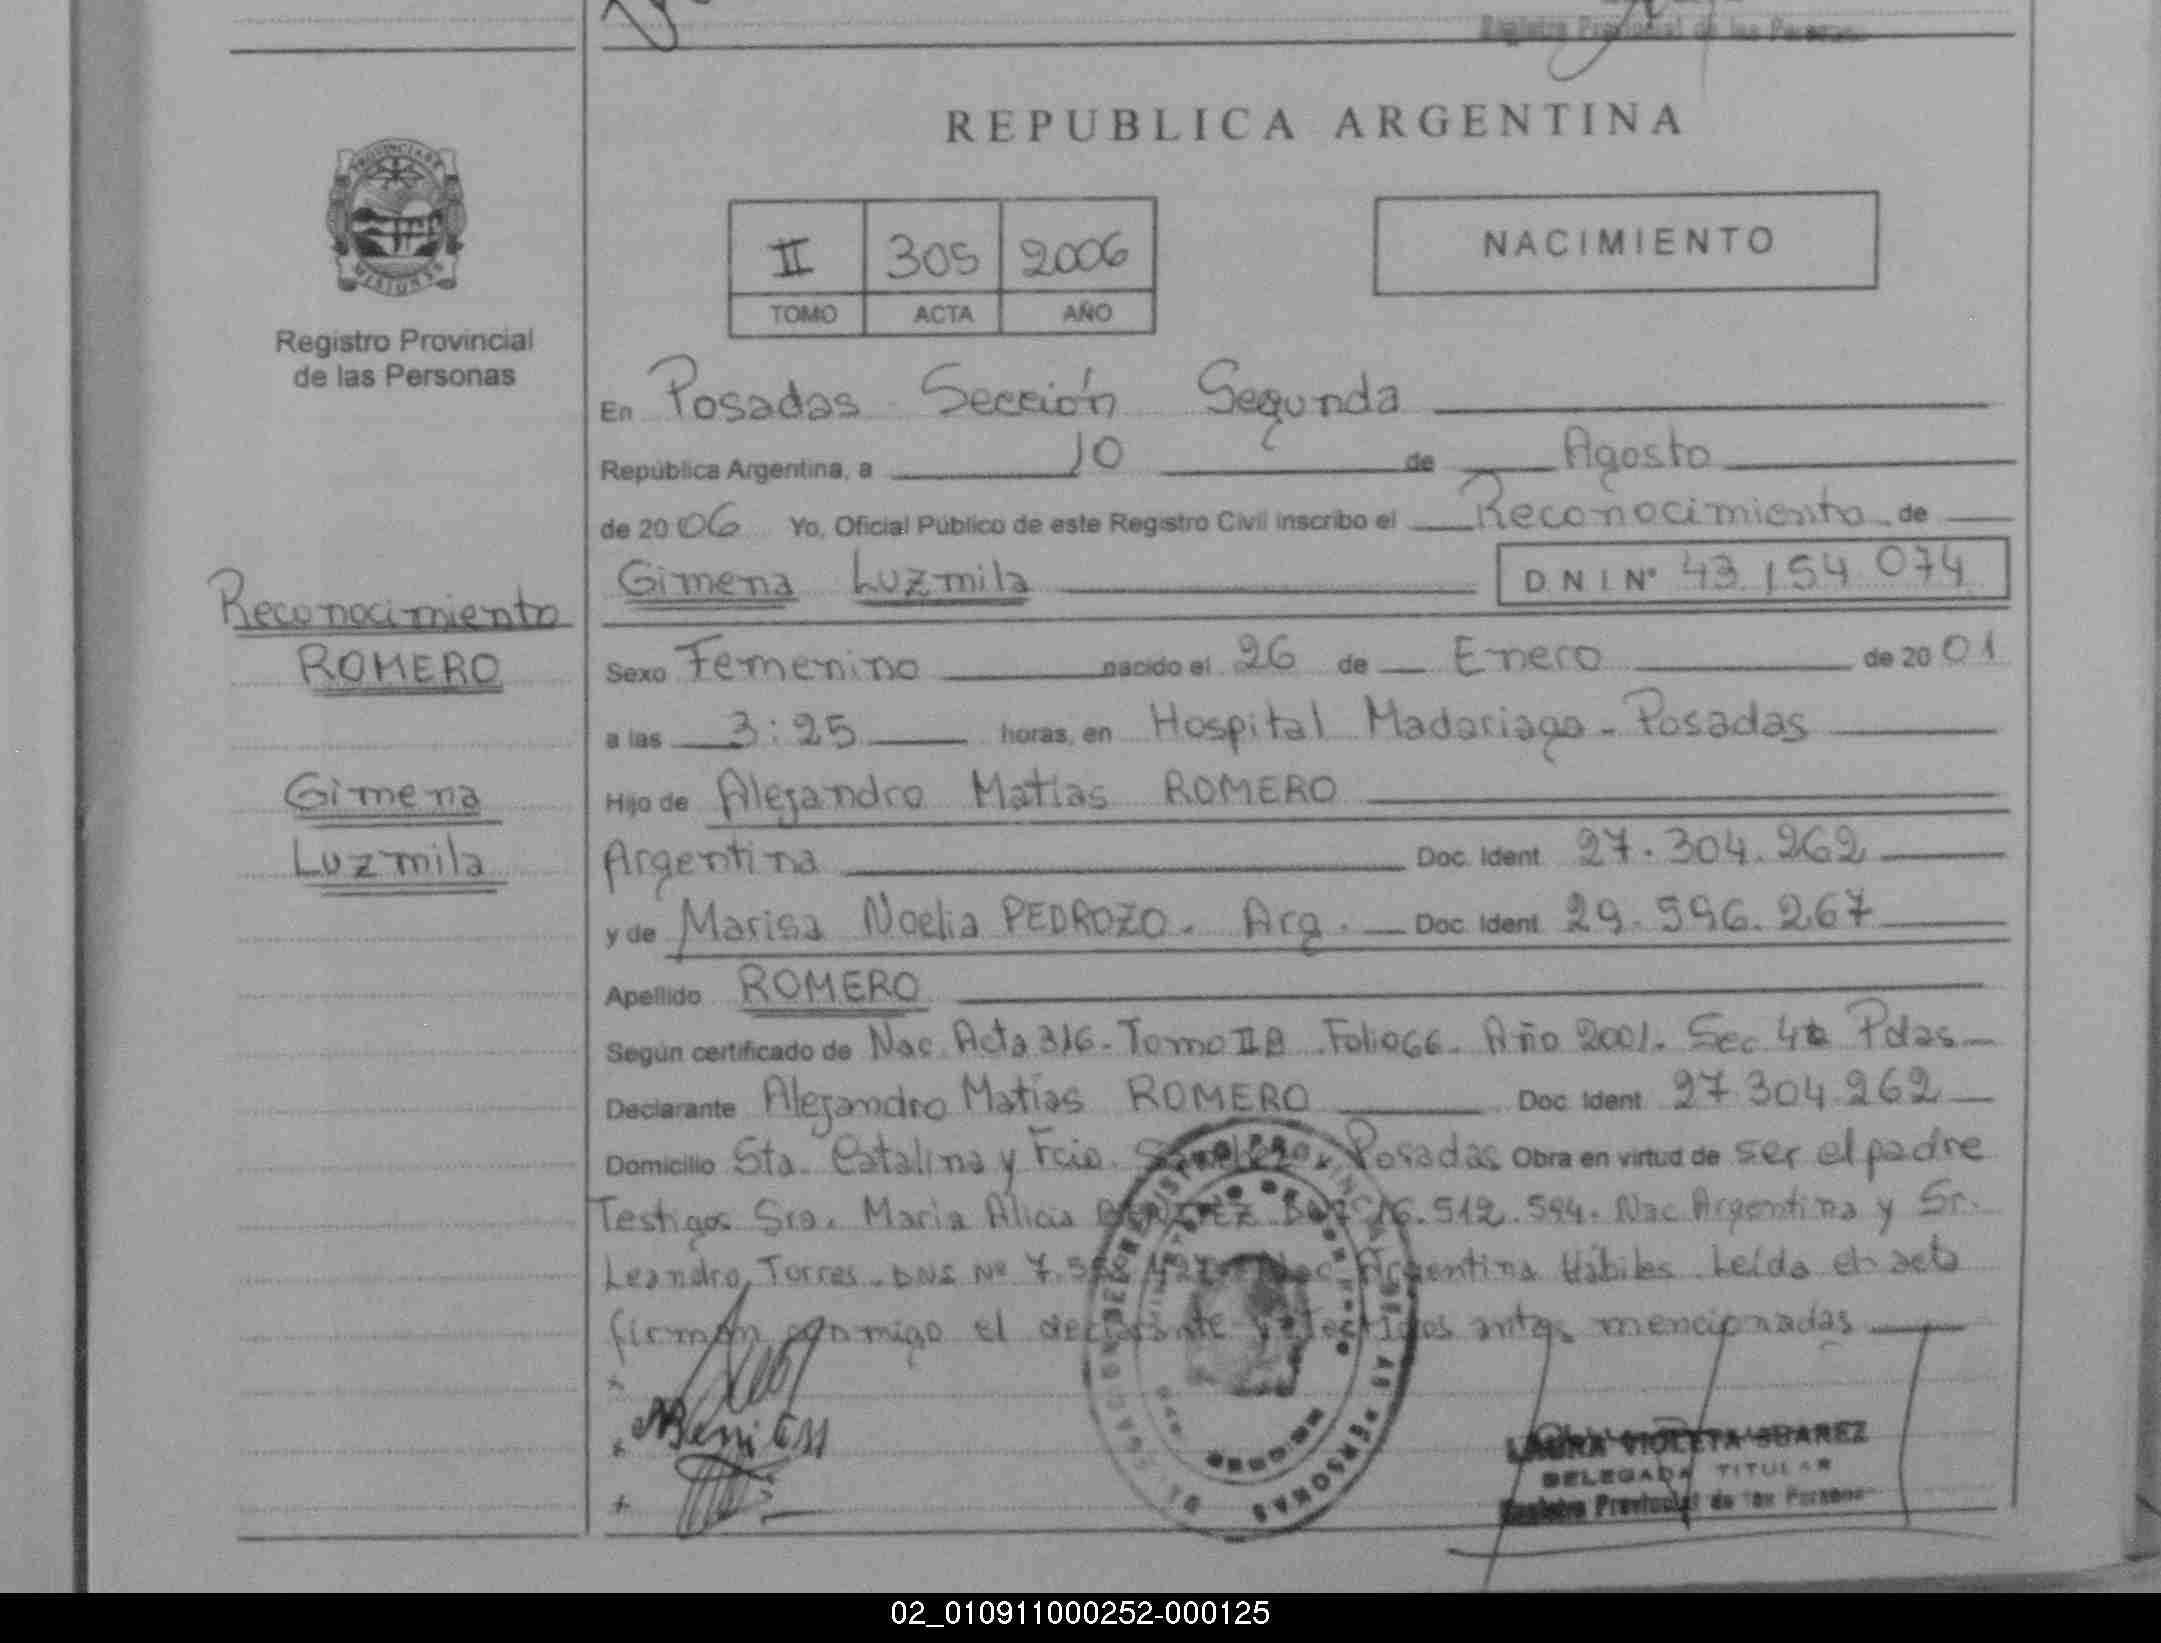 REPUBLICA ARGENTINA
PROVINCIA DE
MISIONES
Registro Provincial
de las Personas
II 305 2006
TOMO ACTA AÑO
NACIMIENTO
En Posadas Sección Segunda
República Argentina, a 10 de Agosto
de 2006 Yo, Oficial Público de este Registro Civil inscribo el Reconocimiento de
Gimena Luzmila D N I Nº 43.154.074
Reconocimiento
ROMERO
Gimena
Luzmila
Sexo Femenino nacido el 26 de Enero de 2001
a las 3:25 horas, en Hospital Madariaga - Posadas
Hijo de Alejandro Matias ROMERO
Argentina Doc. Ident 27.304.262
y de Marisa Noelia PEDROZO. Arg. Doc. Ident 29.596.267
Apellido ROMERO
Según certificado de Nac. Acta 316. Tomo II Folio 66. Año 2001. Sec 4ta Pdas
Declarante Alejandro Matías ROMERO Doc. Ident 27.304.262
Domicilio Sta. Catalina y Fcio. Posadas Obra en virtud de ser el padre
Testigos Sra. Maria Alicia 16.512.594. Nac Argentina y Sr.
Leandro Torres. DNI Nº Argentina Hábiles. Leída el acta
firman conmigo el declarante y testigos antes mencionadas
LAURA VIOLETA SUAREZ
DELEGADA TITULAR
Registro Provincial de las Personas
02_010911000252-000125